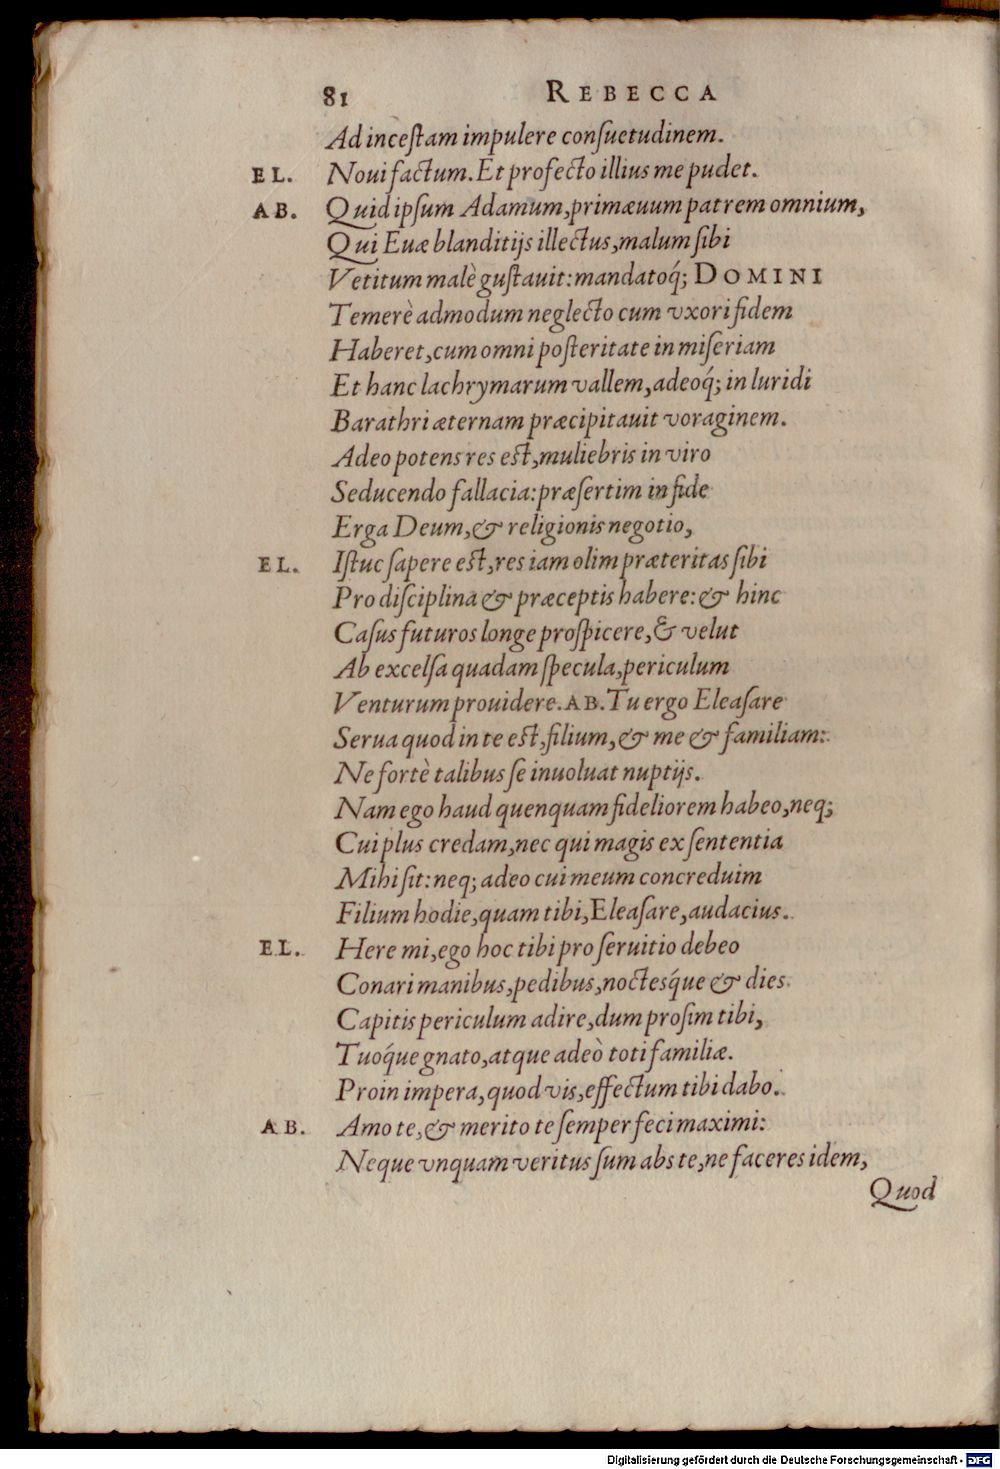 81 REBECCA
Ad inceſtam impulere conſuetudinem.
EL. Noui factum. Et profecto illius me pudet.
AB. Quid ipſum Adamum, primæuum patrem omnium,
Qui Euæ blanditijs illectus, malum ſibi
Vetitum malè guſtauit: mandatoq́; DOMINI
Temerè admodum neglecto cum vxori fidem
Haberet, cum omni poſteritate in miſeriam
Et hanc lachrymarum vallem, adeoq́; in luridi
Barathri æternam præcipitauit voraginem.
Adeo potens res est, muliebris in viro
Seducendo fallacia: præſertim in fide
Erga Deum, & religionis negotio,
EL. Iſtuc ſapere est, res iam olim præteritas ſibi
Pro diſciplina & præceptis habere: & hinc
Caſus futuros longe proſpicere, & velut
Ab excelſa quadam ſpecula, periculum
Venturum prouidere. AB. Tu ergo Eleaſare
Serua quod in te est, filium, & me & familiam:
Ne fortè talibus ſe inuoluat nuptijs.
Nam ego haud quenquam fideliorem habeo, neq;
Cui plus credam, nec qui magis ex ſententia
Mihi ſit: neq; adeo cui meum concreduim
Filium hodie, quam tibi, Eleaſare, audacius.
EL. Here mi, ego hoc tibi pro ſeruitio debeo
Conari manibus, pedibus, noctesq́ue & dies
Capitis periculum adire, dum proſim tibi,
Tuoq́ue gnato, atque adeò toti familiæ.
Proin impera, quod vis, effectum tibi dabo.
AB. Amo te, & merito te ſemper feci maximi:
Neque vnquam veritus ſum abs te, ne faceres idem,
Quod
Digitalisierung gefördert durch die Deutsche Forschungsgemeinschaft - DFG